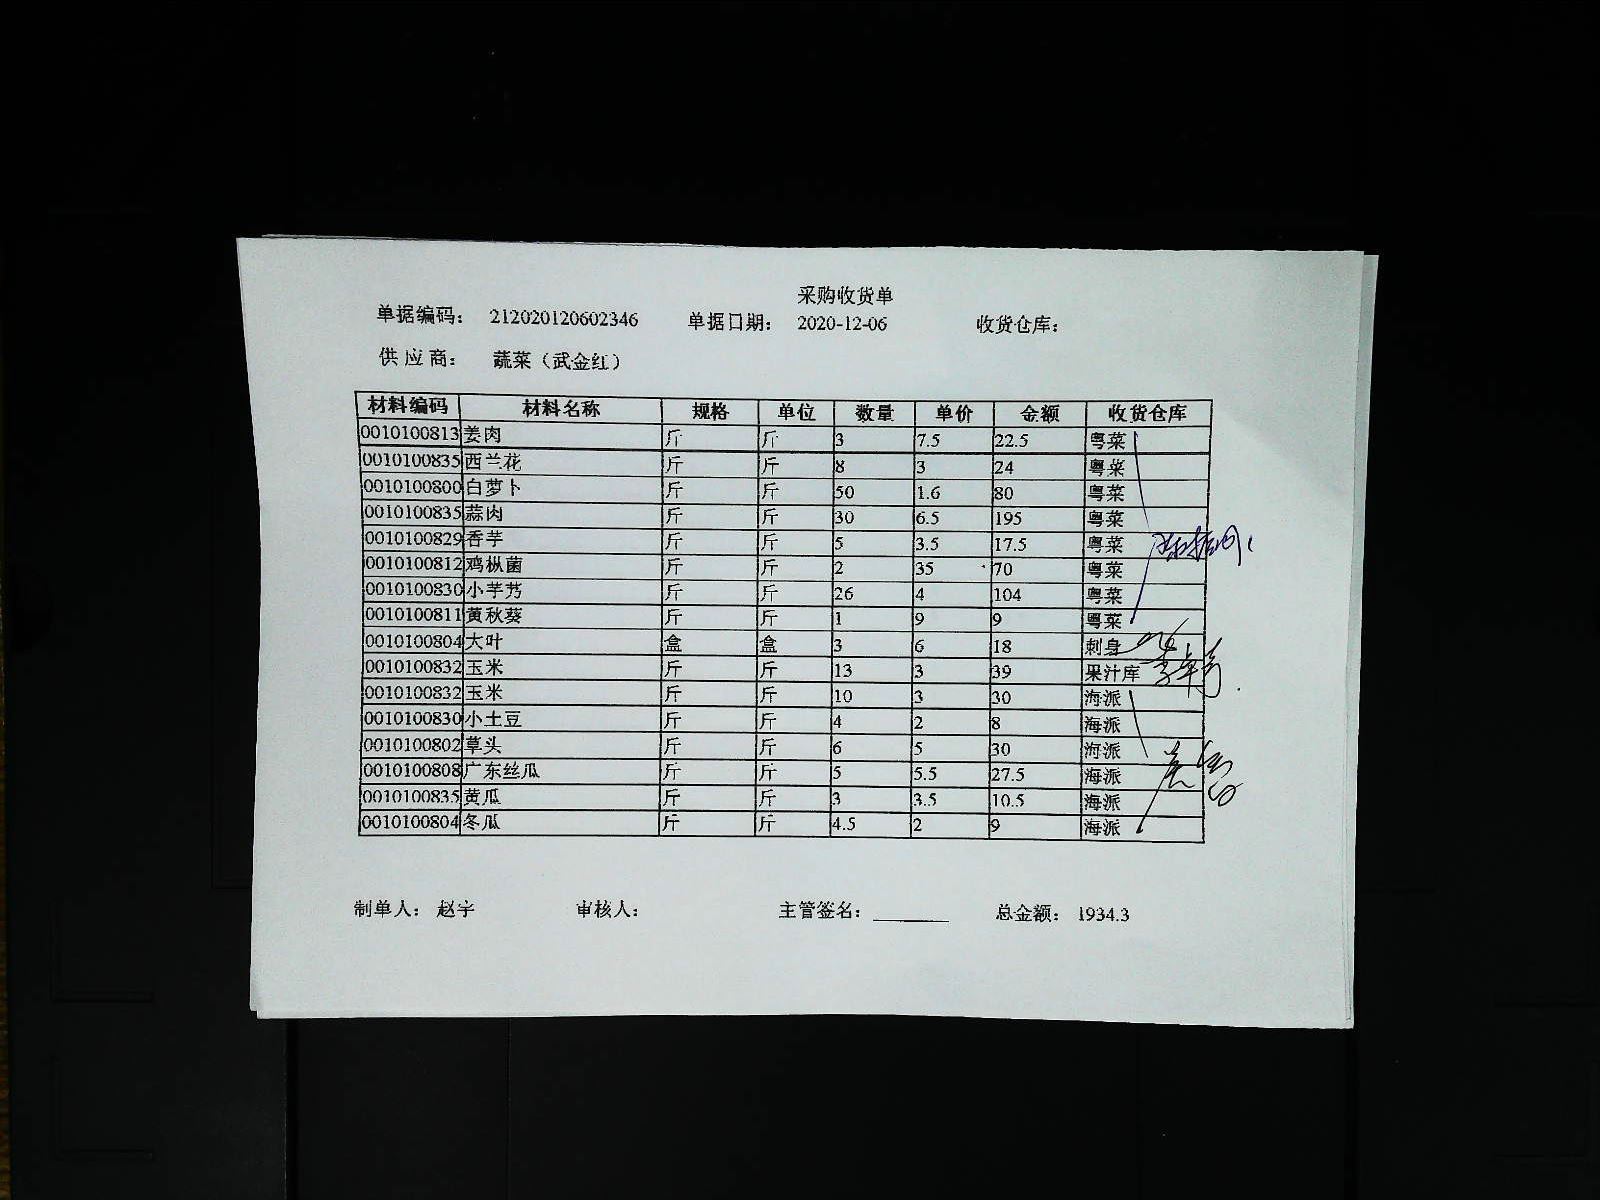 采购收货单
单据编码： 212020120602346 单据日期： 2020-12-06 收货仓库：
供 应 商： 蔬菜（武金红）
材料编码 材料名称 规格 单位 数量 单价 金额 收货仓库
0010100813 姜肉 斤 斤 3 7.5 22.5 粤菜
0010100835 西兰花 斤 斤 8 3 24 粤菜
0010100800 白萝卜 斤 斤 50 1.6 80 粤菜
0010100835 蒜肉 斤 斤 30 6.5 195 粤菜
0010100829 香芋 斤 斤 5 3.5 17.5 粤菜
0010100812 鸡枞菌 斤 斤 2 35 70 粤菜
0010100830 小芋艿 斤 斤 26 4 104 粤菜
0010100811 黄秋葵 斤 斤 1 9 9 粤菜
0010100804 大叶 盒 盒 3 6 18 刺身
0010100832 玉米 斤 斤 13 3 39 果汁库
0010100832 玉米 斤 斤 10 3 30 海派
0010100830 小土豆 斤 斤 4 2 8 海派
0010100802 草头 斤 斤 6 5 30 海派
0010100808 广东丝瓜 斤 斤 5 5.5 27.5 海派
0010100835 黄瓜 斤 斤 3 3.5 10.5 海派
0010100804 冬瓜 斤 斤 4.5 2 9 海派
制单人： 赵宇 审核人： 主管签名： 总金额： 1934.3